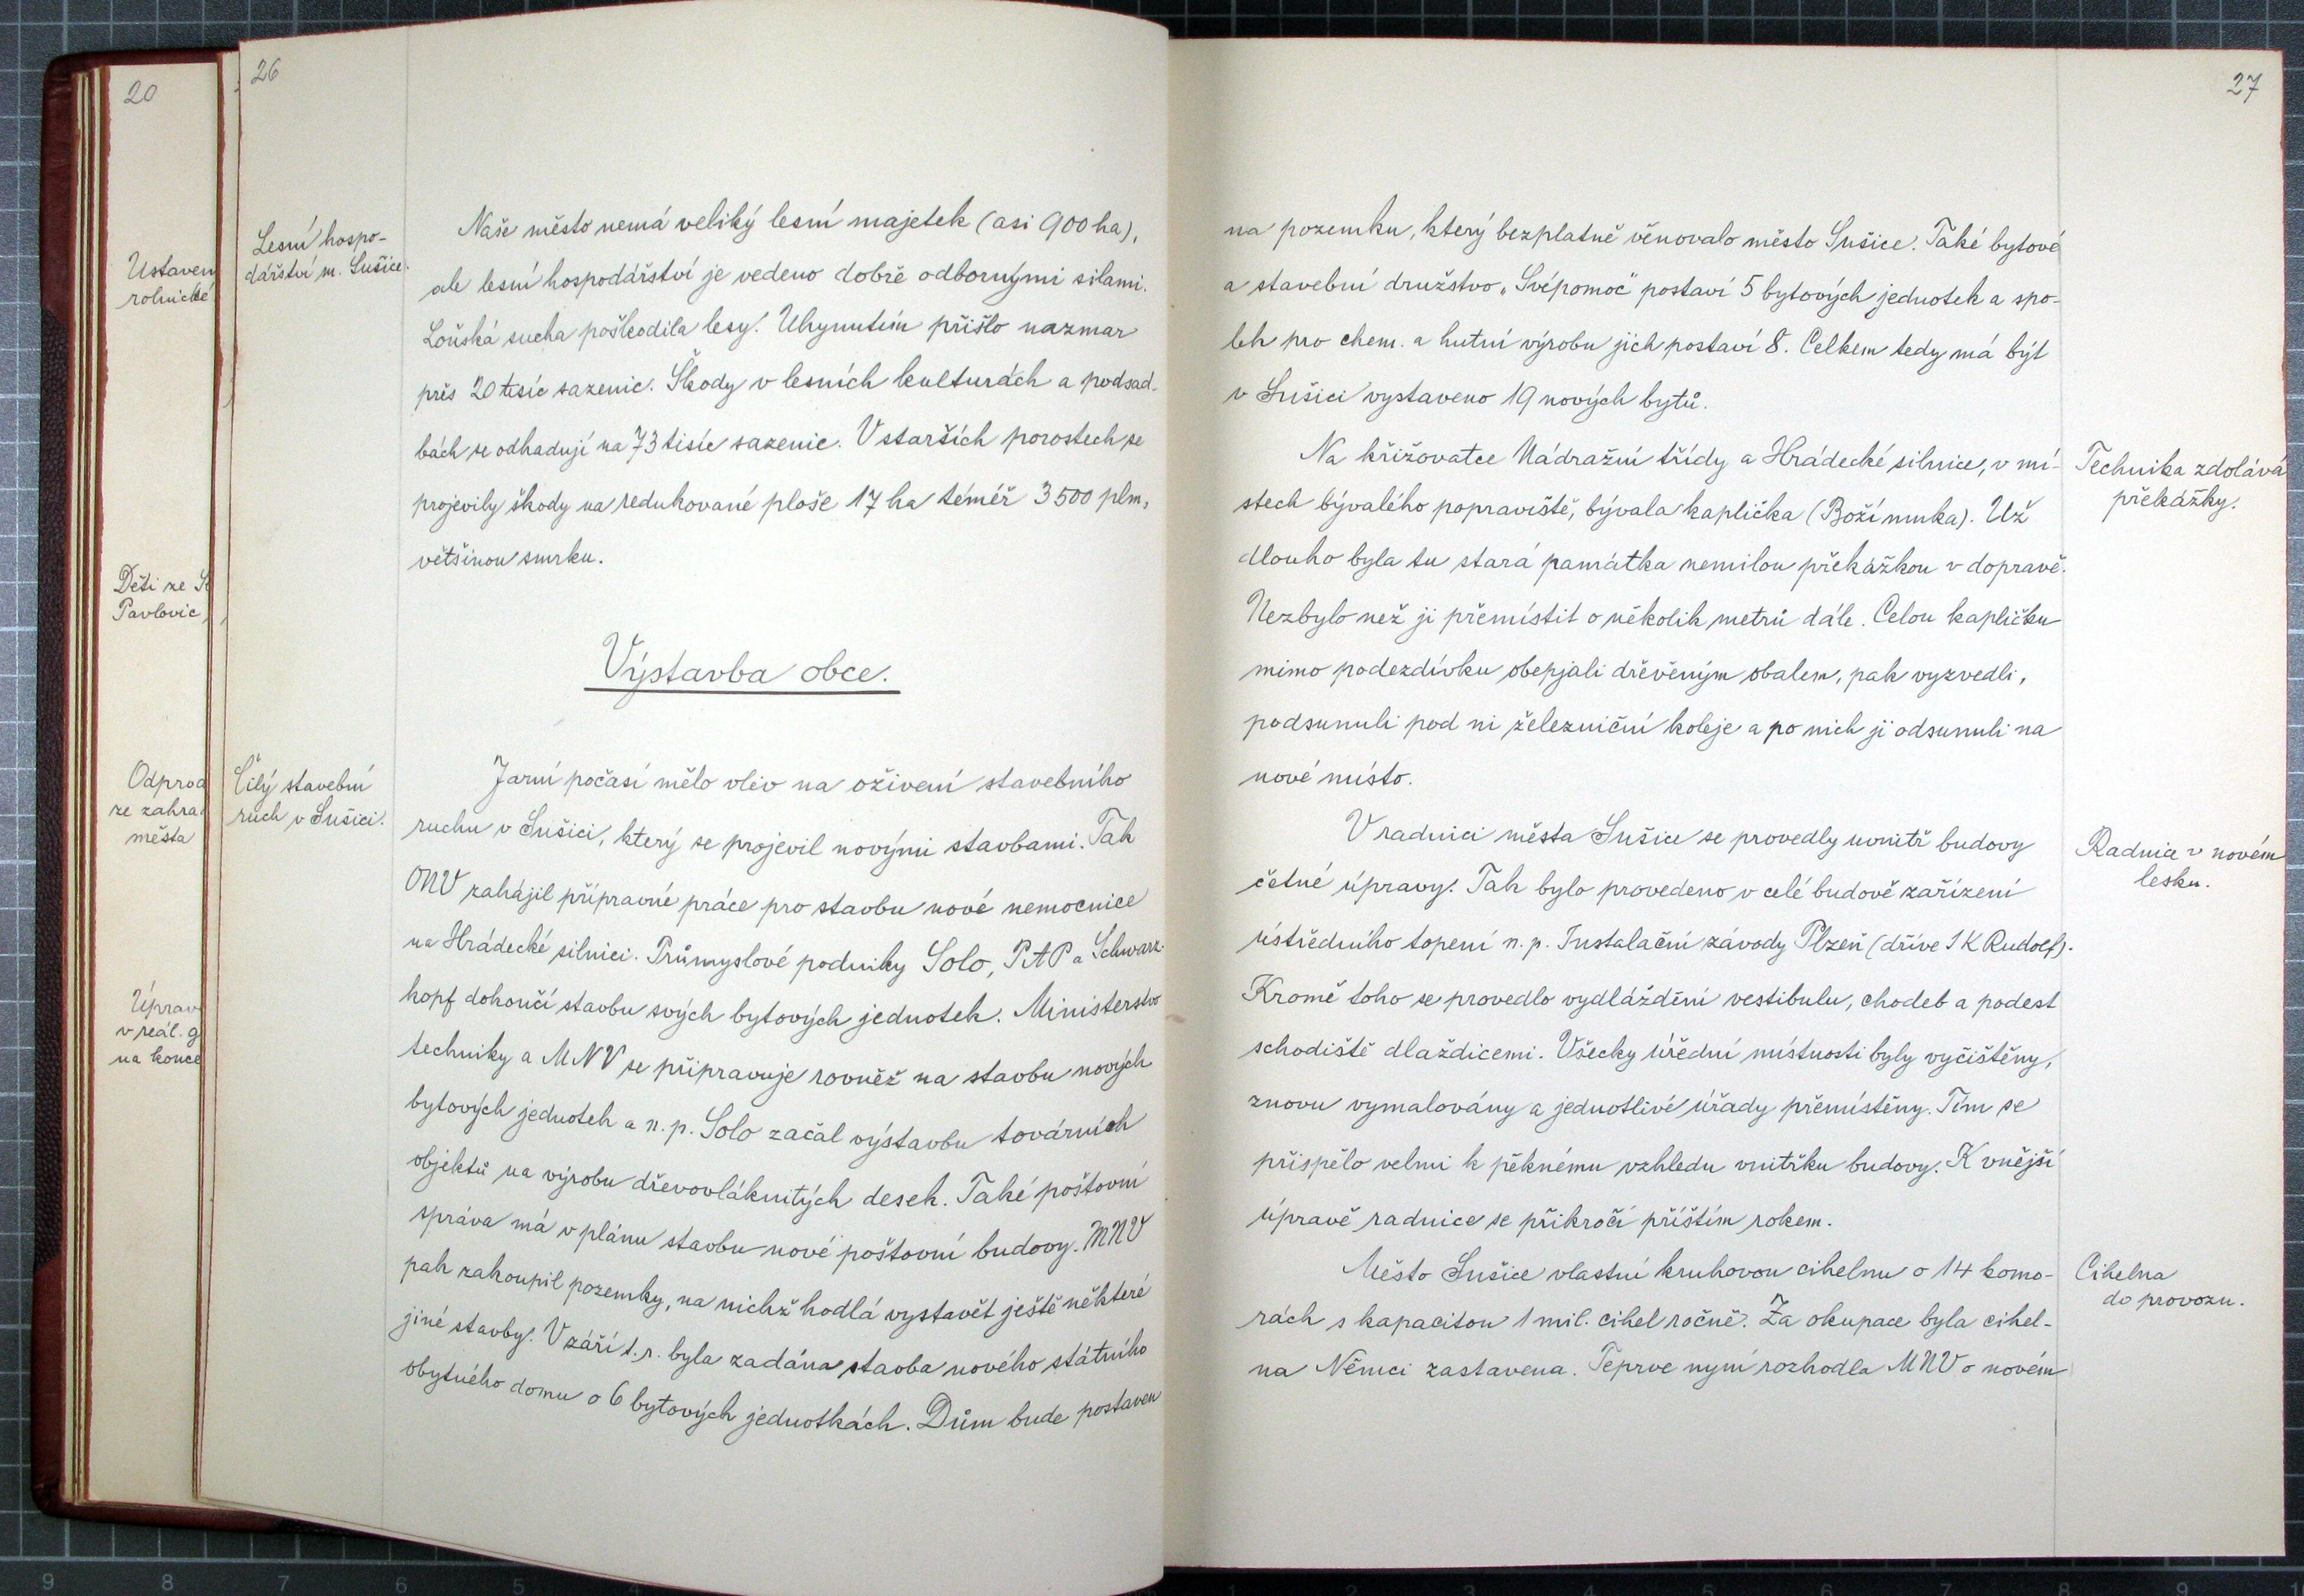 20
Ustaven
rolnické
Děti ze S
Pavlovic
Odprod
ze zahra
města
Úprav
v reál. g
na konce
26
Lesní hospo-
dářství m. Sušice.
Naše město nemá veliký lesní majetek (asi 900 ha),
ale lesní hospodářství je vedeno dobře odbornými silami.
Loňská sucha poškodila lesy. Uhynutím přišlo nazmar
přes 20 tisíc sazenic. Škody v lesních kulturách a podsad-
bách se odhadují na 73 tisíc sazenic. V starších porostech se
projevily škody na redukované ploše 17 ha téměř 3500 plm,
většinou smrku.
Výstavba obce.
Čilý stavební
ruch v Sušici.
Jarní počasí mělo vliv na oživení stavebního
ruchu v Sušici, který se projevil novými stavbami. Tak
ONV zahájil přípravné práce pro stavbu nové nemocnice
na Hrádecké silnici. Průmyslové podniky Solo, PAP a Schwarz-
kopf dokončí stavbu svých bytových jednotek. Ministerstvo
techniky a MNV se připravuje rovněž na stavbu nových
bytových jednotek a n. p. Solo začal výstavbu továrních
objektů na výrobu dřevovláknitých desek. Také poštovní
správa má v plánu stavbu nové poštovní budovy. MNV
pak zakoupil pozemky, na nichž hodlá vystavět ještě některé
jiné stavby. V září t. r. byla zadána stavba nového státního
obytného domu o 6 bytových jednotkách. Dům bude postaven
27
na pozemku, který bezplatně věnovalo město Sušice. Také bytové
a stavební družstvo „Svépomoc" postaví 5 bytových jednotek a spo-
lek pro chem. a hutní výrobu jich postaví 8. Celkem tedy má být
v Sušici vystaveno 19 nových bytů.
Na křižovatce Nádražní třídy a Hrádecké silnice, v mí-
stech bývalého popraviště, bývala kaplička (Boží muka). Už
dlouho byla tu stará památka nemilou překážkou v dopravě.
Nezbylo než ji přemístit o několik metrů dále. Celou kapličku
mimo podezdívku obepjali dřevěným obalem, pak vyzvedli,
podsunuli pod ni železniční koleje a po nich ji odsunuli na
nové místo.
Technika zdolává
překážky.
V radnici města Sušice se provedly uvnitř budovy
četné úpravy. Tak bylo provedeno v celé budově zařízení
ústředního topení n. p. Instalační závody Plzeň (dříve IK Rudolf).
Kromě toho se provedlo vydláždění vestibulu, chodeb a podest
schodiště dlaždicemi. Všecky úřední místnosti byly vyčištěny,
znovu vymalovány a jednotlivé úřady přemístěny. Tím se
přispělo velmi k pěknému vzhledu vnitřku budovy. K vnější
úpravě radnice se přikročí příštím rokem.
Radnice v novém
lesku.
Město Sušice vlastní kruhovou cihelnu o 14 komo-
rách s kapacitou 1 mil. cihel ročně. Za okupace byla cihel-
na Němci zastavena. Teprve nyní rozhodla MNV o novém
Cihelna
do provozu.
9 8 7 6 5 4 1 2 3 4 5 6 7 8 9